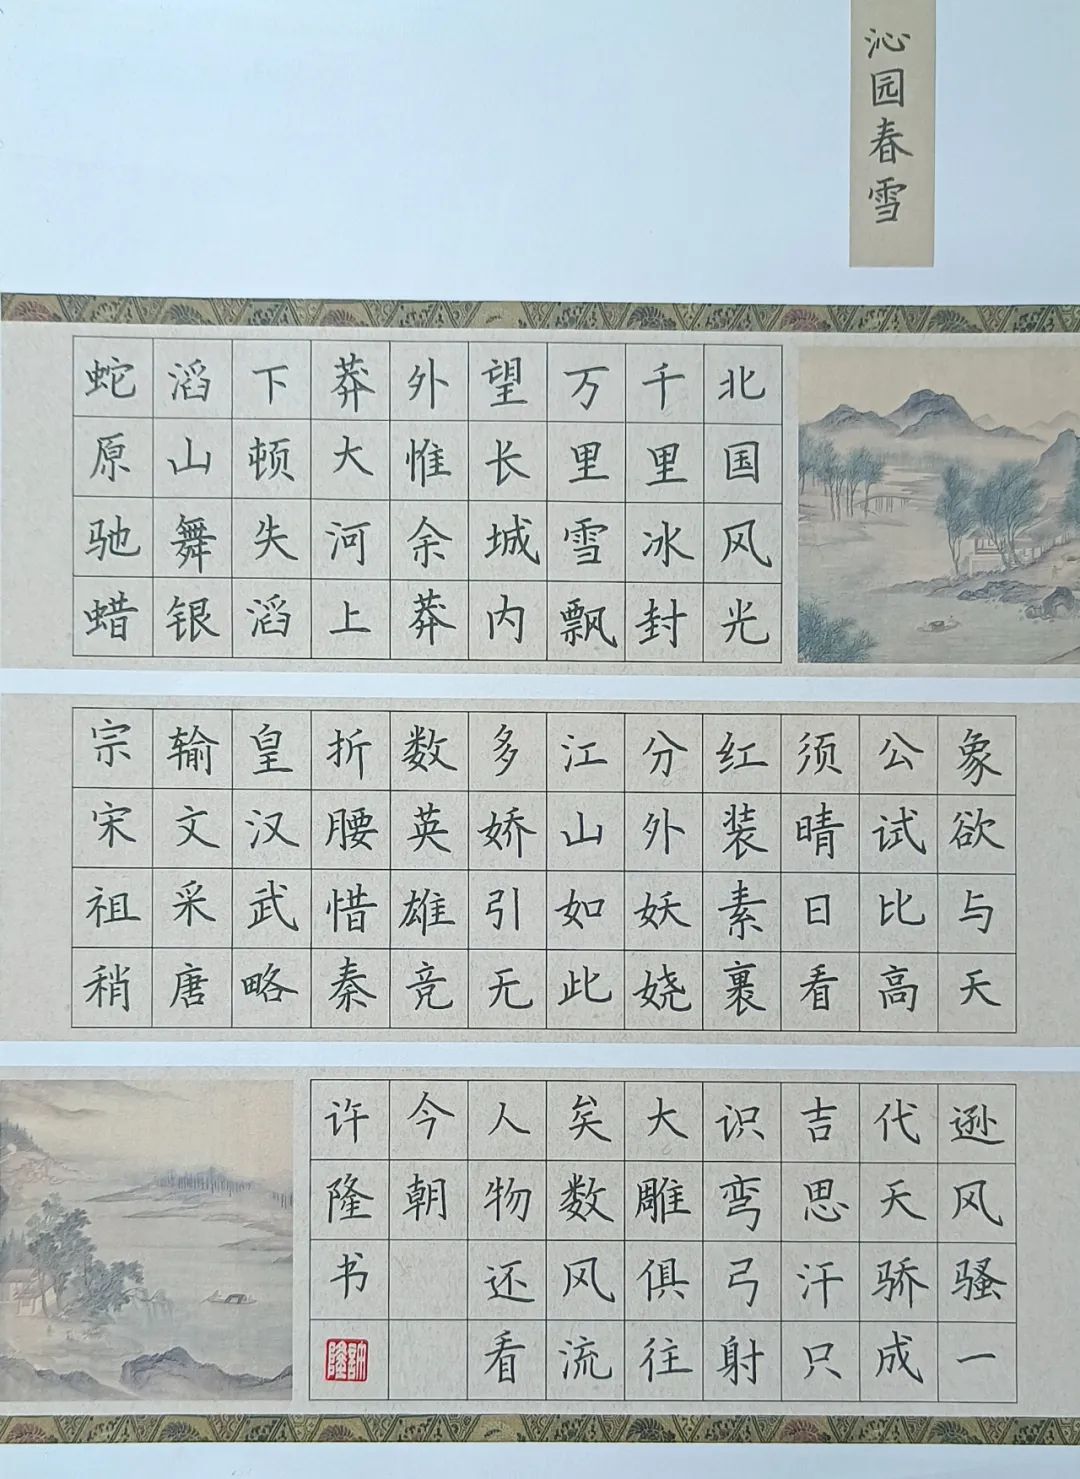 沁园春雪
北国风光
千里冰封
万里雪飘
望长城内
外惟余莽
莽大河上
下顿失滔
滔山舞银
蛇原驰蜡
象欲与天
公试比高
须晴日看
红装素裹
分外妖娆
江山如此
多娇引无
数英雄竞
折腰惜秦
皇汉武略
输文采唐
宗宋祖稍
逊风骚一
代天骄成
吉思汗只
识弯弓射
大雕俱往
矣数风流
人物还看
今朝
许隆书
許隆